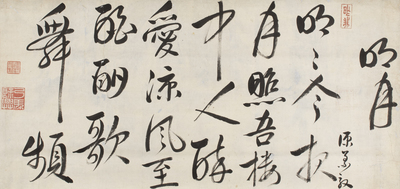 明月
明〻今夜
月照吾樓
中人醉
愛涼風至
歌
舞頻